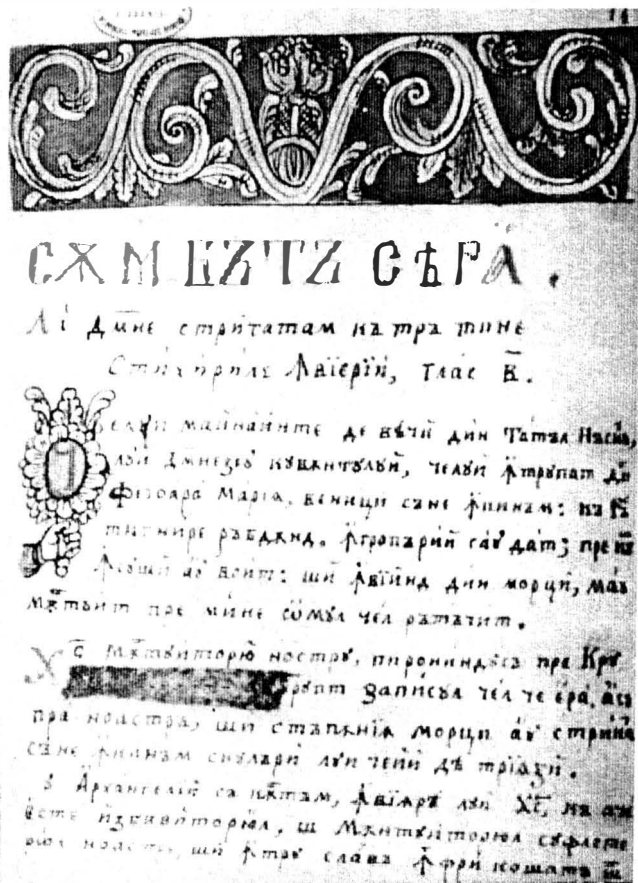 СѪМБѪТѪ СѢРА.
Ла Дмⷩне стригатам кътрѫ тине
Стихириле Ꙟвїерїй, глас в҃.
Челуй май наинте де вѣчй дин Татъл Нъскꙋ,
луй Дмⷩнезеꙋ кꙋвѫнтꙋлꙋй, челуй ꙟтрꙋпат дин
Фечоара Марїа, вениць съне ꙟкинъм: къ
тигнире ръбдѫнд. ꙟгропърїй саꙋ дат; пре
ꙟсꙋшй аꙋ воит: шй ꙟвїинд дин морцй, маꙋ
мѫтꙋит пре мине ѡмꙋл чел рътъчит.
Хс҃ Мѫтꙋиторю ностру, пирониндꙋсъ пре Крꙋ
рꙋпт Записꙋл чел че ера, асꙋ
пра ноастра, шй стъпѫнїа морци аꙋ стрикат
съне ꙟкинъм скулърїй луй чейй дѣ трїазй.
Архангелїй съ кѫтъм, ꙟвїѧрѣ луй Хс҃, къ ач
есте изꙁбъвиторюл, ш Мѫнтꙋиторюл сꙋфлете
ноастре, шй ꙟтрꙋ славъ ꙟфрикошатъ